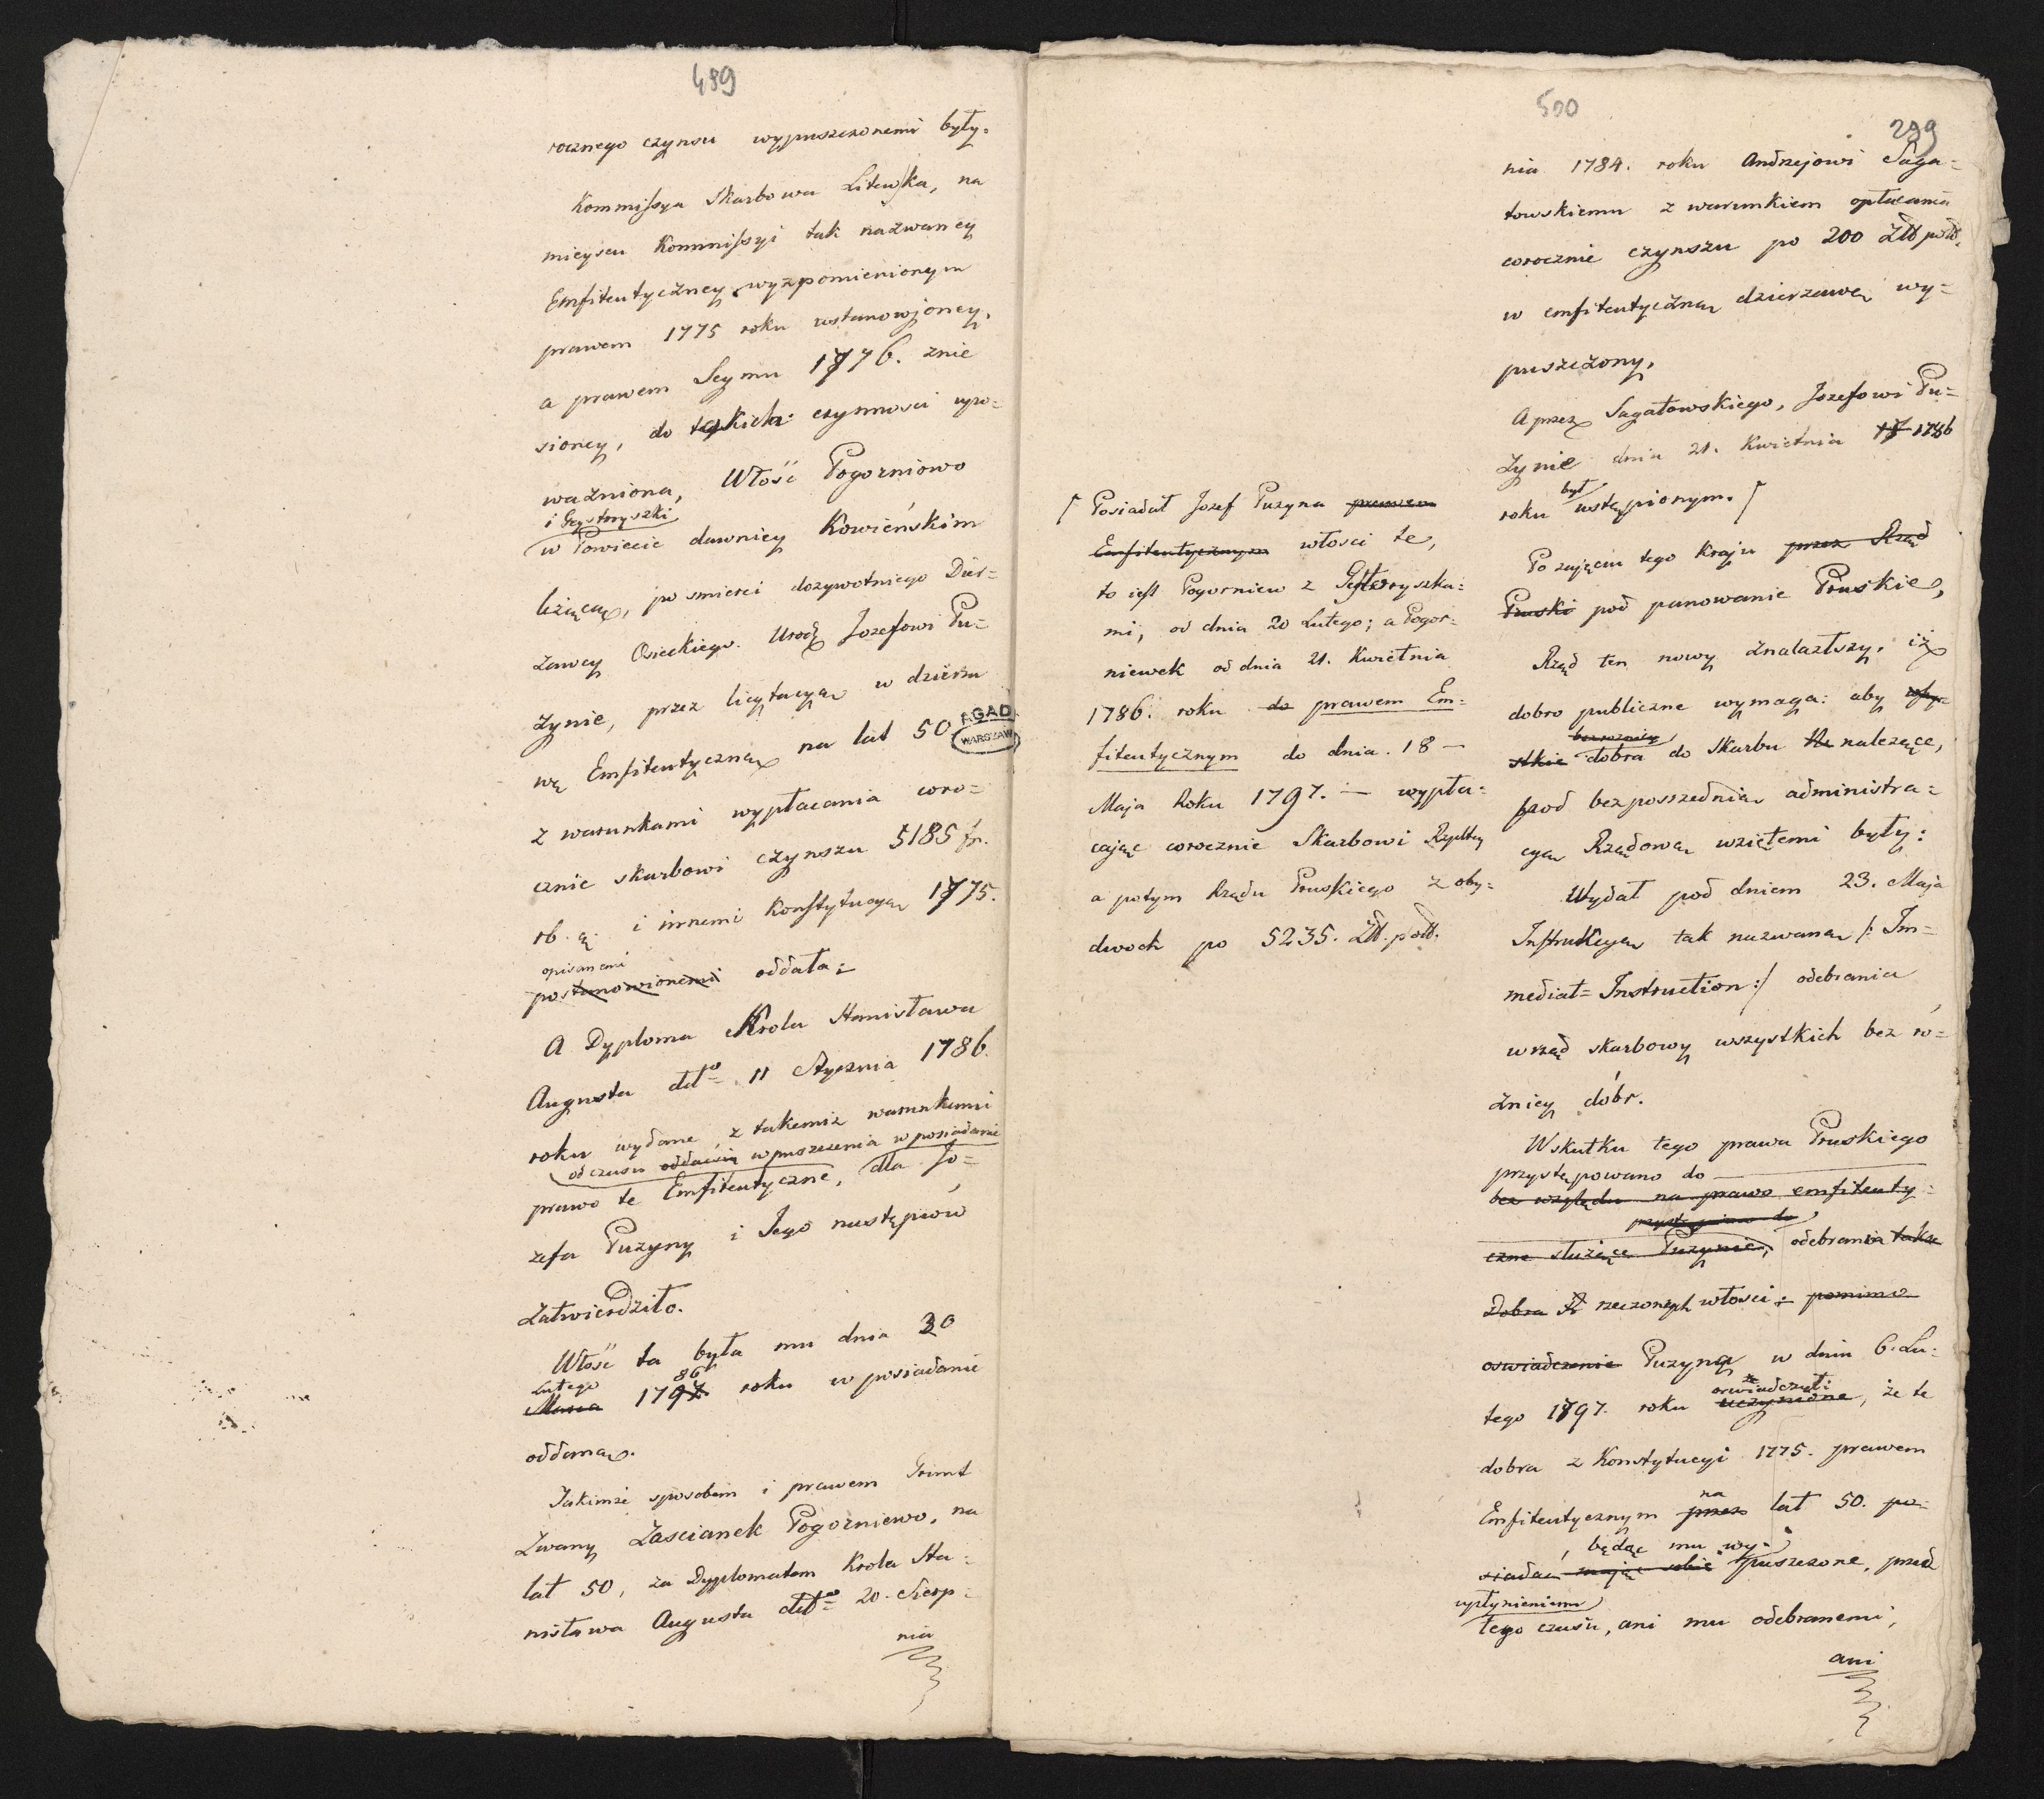 489
rocznego czynsu wypuszczonemi były.
Kommissya Skarbowa Litewska, na
mieyscu Kommissyi tak nazwaney
Emfiteutyczney wyzpomienionym
prawem 1775 roku ustanowioney,
a prawem Seymu 1776. znie
sioney, do takich czynnosci upo=
ważniona, Włość Pogorniowo
i Gystryszki
w Powiecie dawniey Kowieńskim
leżącą, po smierci dozywotniego Dzier=
żawcy Osieckiego. Urodz Jozefowi Pu=
zynie, przez licytacyą w dzierża
wę Emfiteutyczną na lat 50
AGAD
WARSZAWA
z warunkami wypłacania coro=
cznie skarbowi czynszu 5185 fr.
rb. q. i innemi Konstytucyą 1775.
opisanemi
postanowionemi oddała:
A Dyploma Krola Stanisława
Augusta dtto 11 Stycznia 1786.
roku wydane, z takemiż warunkami
od czasu oddania wpuszczenia w posiadanie
prawo te Emfiteutyczne, dla Jo=
zefa Puzyny i Jego następców
zatwierdziło.
Włość ta była mu dnia 20
Lutego 86
Marca 1797. roku w posiadanie
oddana.
Takimże sposobem i prawem Grunt
Zwany Zascianek Pogorniewo, na
lat 50, za Dyplomatem Krola Sta=
nisława Augusta dtto 20. Sierp=
nia
500
299
nia 1784. roku Andrzejowi Saga=
towskiemu z warunkiem opłacania
corocznie czynszu po 200 Złł polł.
w emfiteutyczną dzierżawę wy=
puszczony,
A przez Sagatowskiego, Jozefowi Pu=
zynie dnia 21. Kwietnia 17 1786
był
roku ustąpionym.
Posiadał Jozef Puzyna prawem
Emfiteutycznym włosci te,
to iest Pogorniew z Gystryszka=
mi, od dnia 20 Lutego; a Pogor=
niewek od dnia 21. Kwietnia
1786. roku do prawem Em=
fiteutycznym do dnia. 18 —
Maja Roku 1797. — wypła=
cając corocznie Skarbowi Rzpltey
a potym Rządu Pruskiego z oby=
dwoch po 5235. Złł. polł.
Po zajęciu tego Kraju przez Rząd
Pruski pod panowanie Pruskie,
Rząd ten nowy znalazłszy, iż
dobro publiczne wymaga: aby wszy=
bez rożnicy
stkie dobra do Skarbu należące,
pod bezposrzednią administra=
cyą Rządową wziętemi były:
Wydał pod dniem 23. Maja
Instrukcyą tak nazwaną /: Im=
mediat= Instruction :/ odebrania
w rząd skarbowy wszystkich bez ró=
żnicy dóbr.
W skutku tego prawa Pruskiego
przystępowano do
bez względu na prawo emfiteuty=
przystępiono do
czne służące Puzynie, odebrania takie
Dobra rzeczonych włosci: pomimo
oswiadczenie Puzyna w dniu 6. Lu=
oswiadczył
tego 1797. roku uczynione, że te
dobra z Konstytucyi 1775. prawem
na
Emfiteutycznym przez lat 50. po=
, będąc mu wy=
siadać mając sobie puszczone, przed
upłynieniem
tego czasu, ani mu odebranemi,
ani